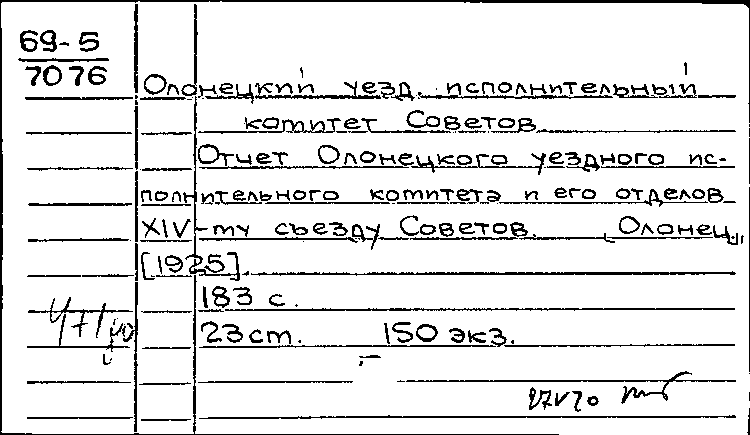 69-5
7076
Олонецкий уезд. исполнительный
комитет Советов
Отчет Олонецкого уездного ис-
полнительного комитета и его отделов
XIV-му съезду Советов. Олонец,
[1925].
183 с.
23 см. 150 экз.
27V70